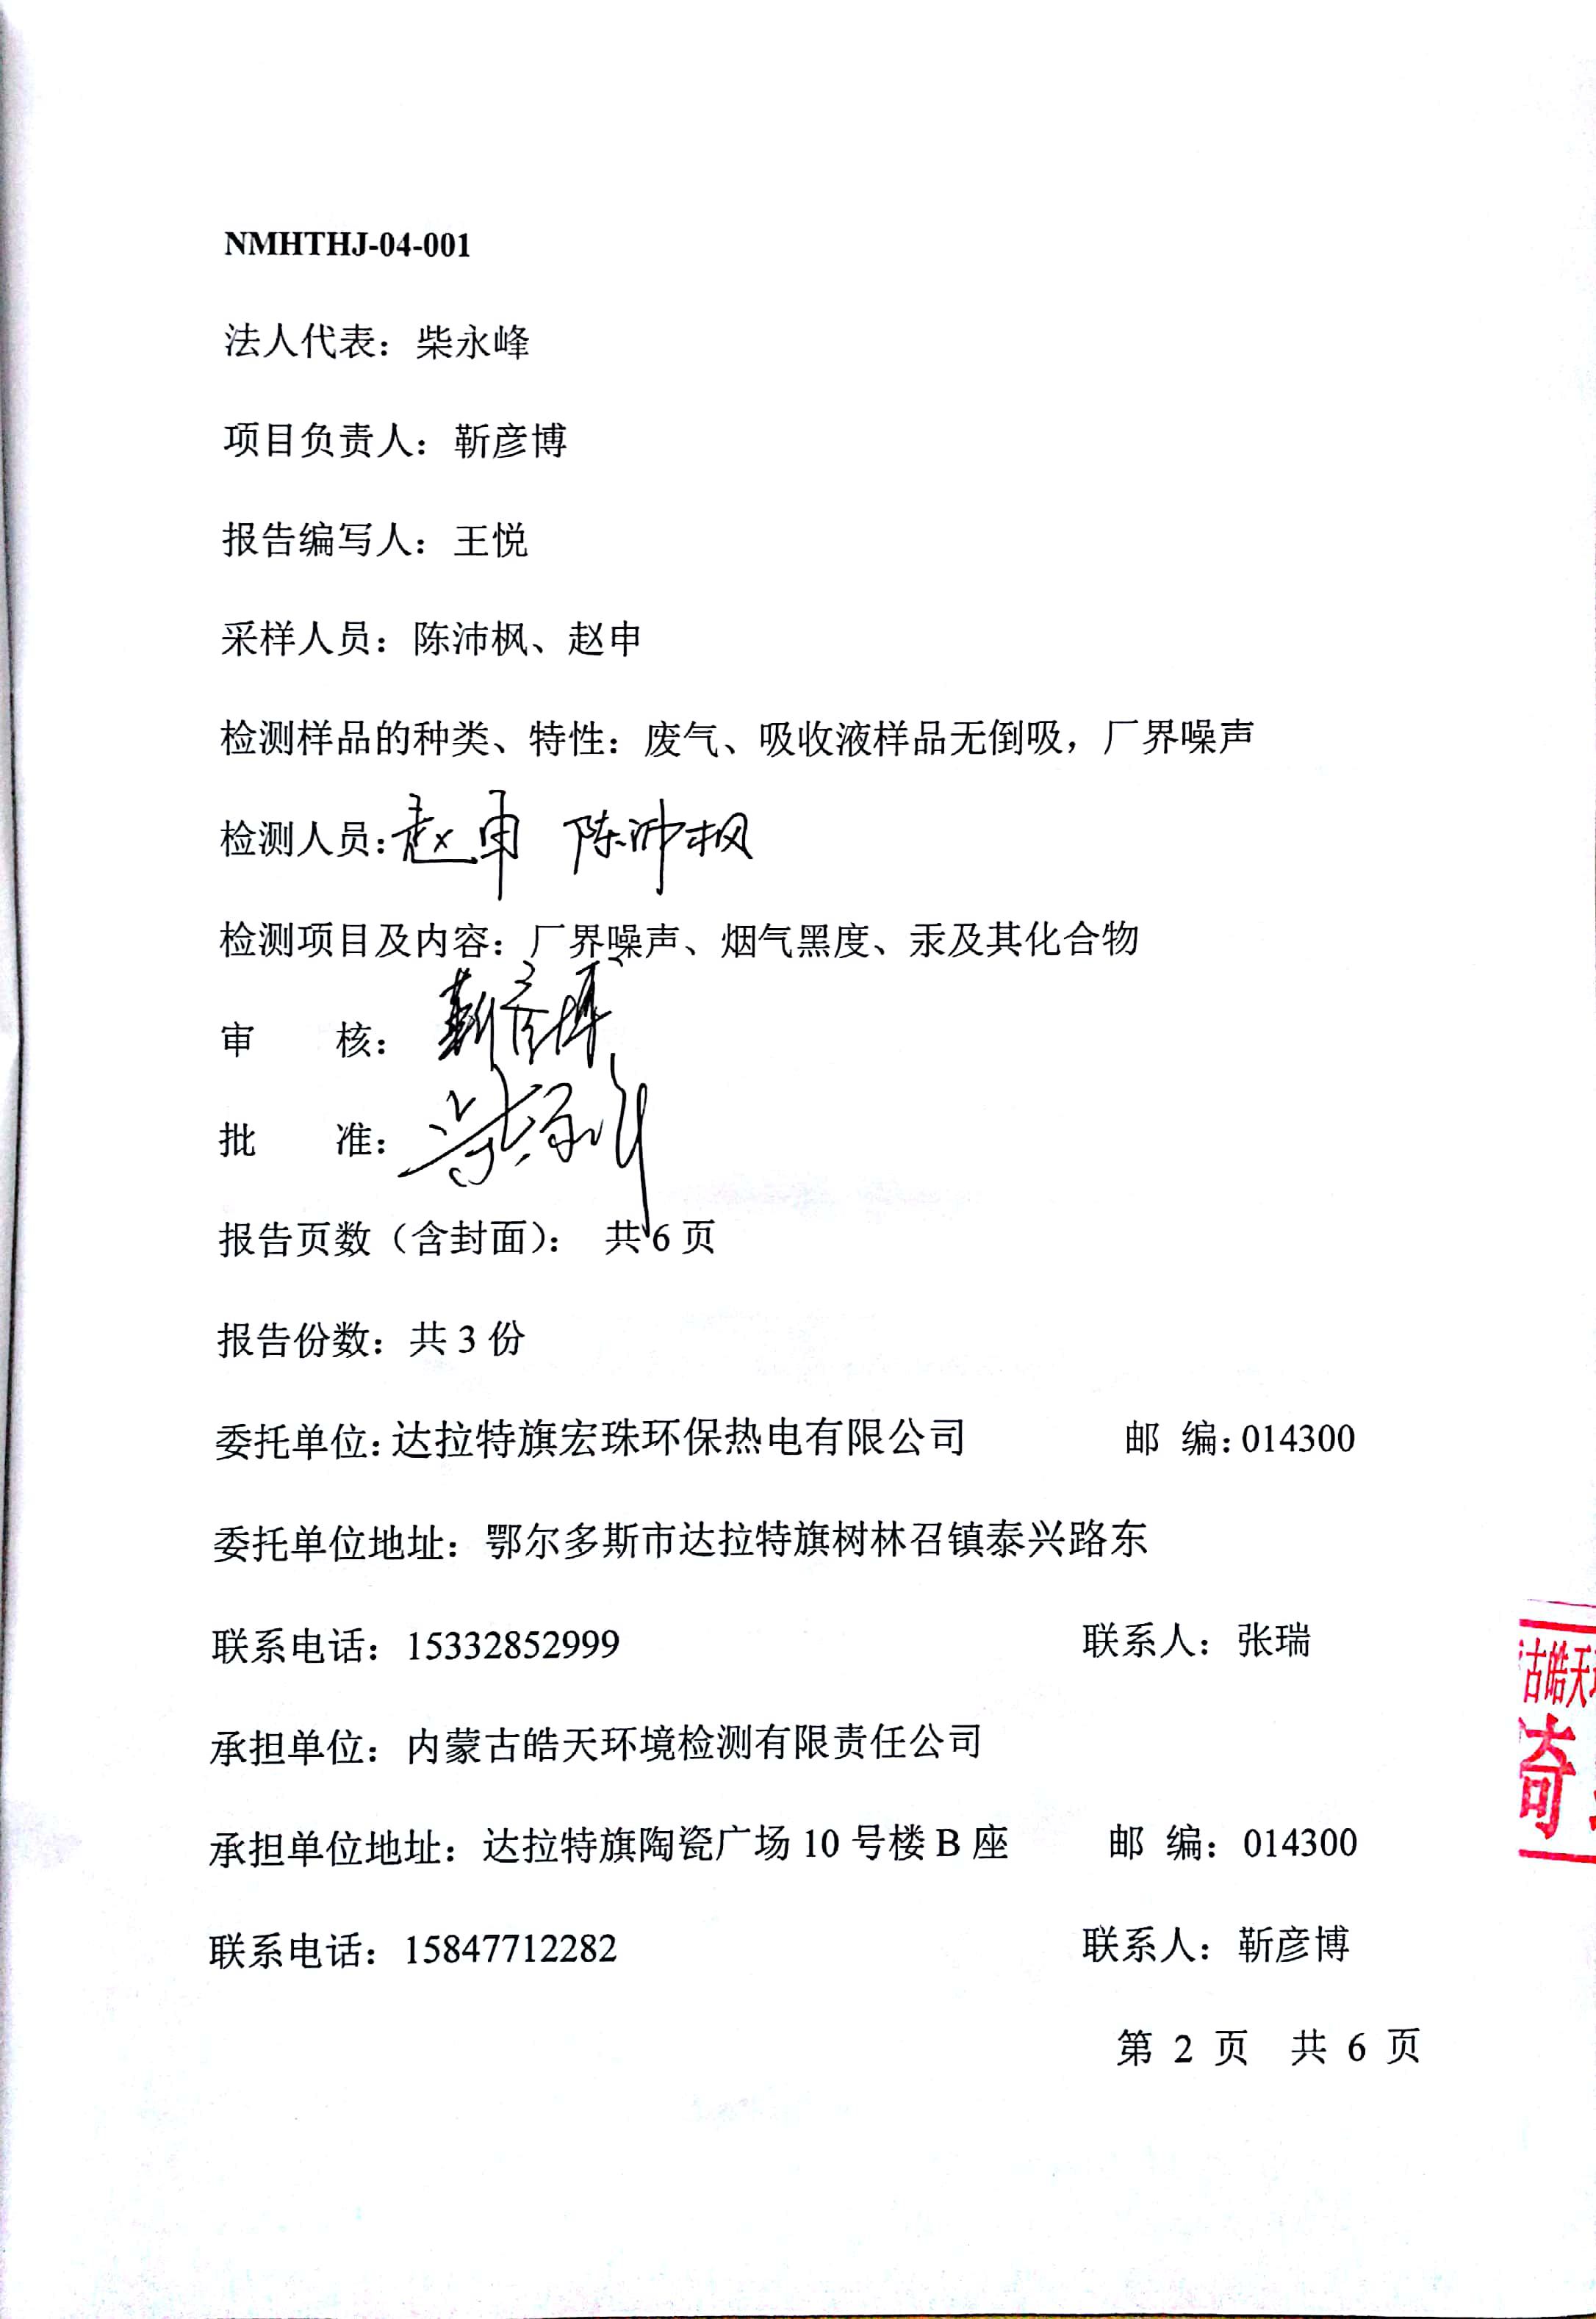 NMHTHJ-04-001
法人代表：柴永峰
项目负责人：靳彦博
报告编写人：王悦
采样人员：陈沛枫、赵申
检测样品的种类、特性：废气、吸收液样品无倒吸，厂界噪声
检测人员：赵申 陈沛枫
检测项目及内容：厂界噪声、烟气黑度、汞及其化合物
审 核：靳彦博
批 准：柴永峰
报告页数（含封面）： 共 6 页
报告份数：共 3 份
委托单位：达拉特旗宏珠环保热电有限公司 邮 编：014300
委托单位地址：鄂尔多斯市达拉特旗树林召镇泰兴路东
联系电话：15332852999 联系人：张瑞
承担单位：内蒙古皓天环境检测有限责任公司
承担单位地址：达拉特旗陶瓷广场 10 号楼 B 座 邮 编：014300
联系电话：15847712282 联系人：靳彦博
第 2 页 共 6 页
古皓天